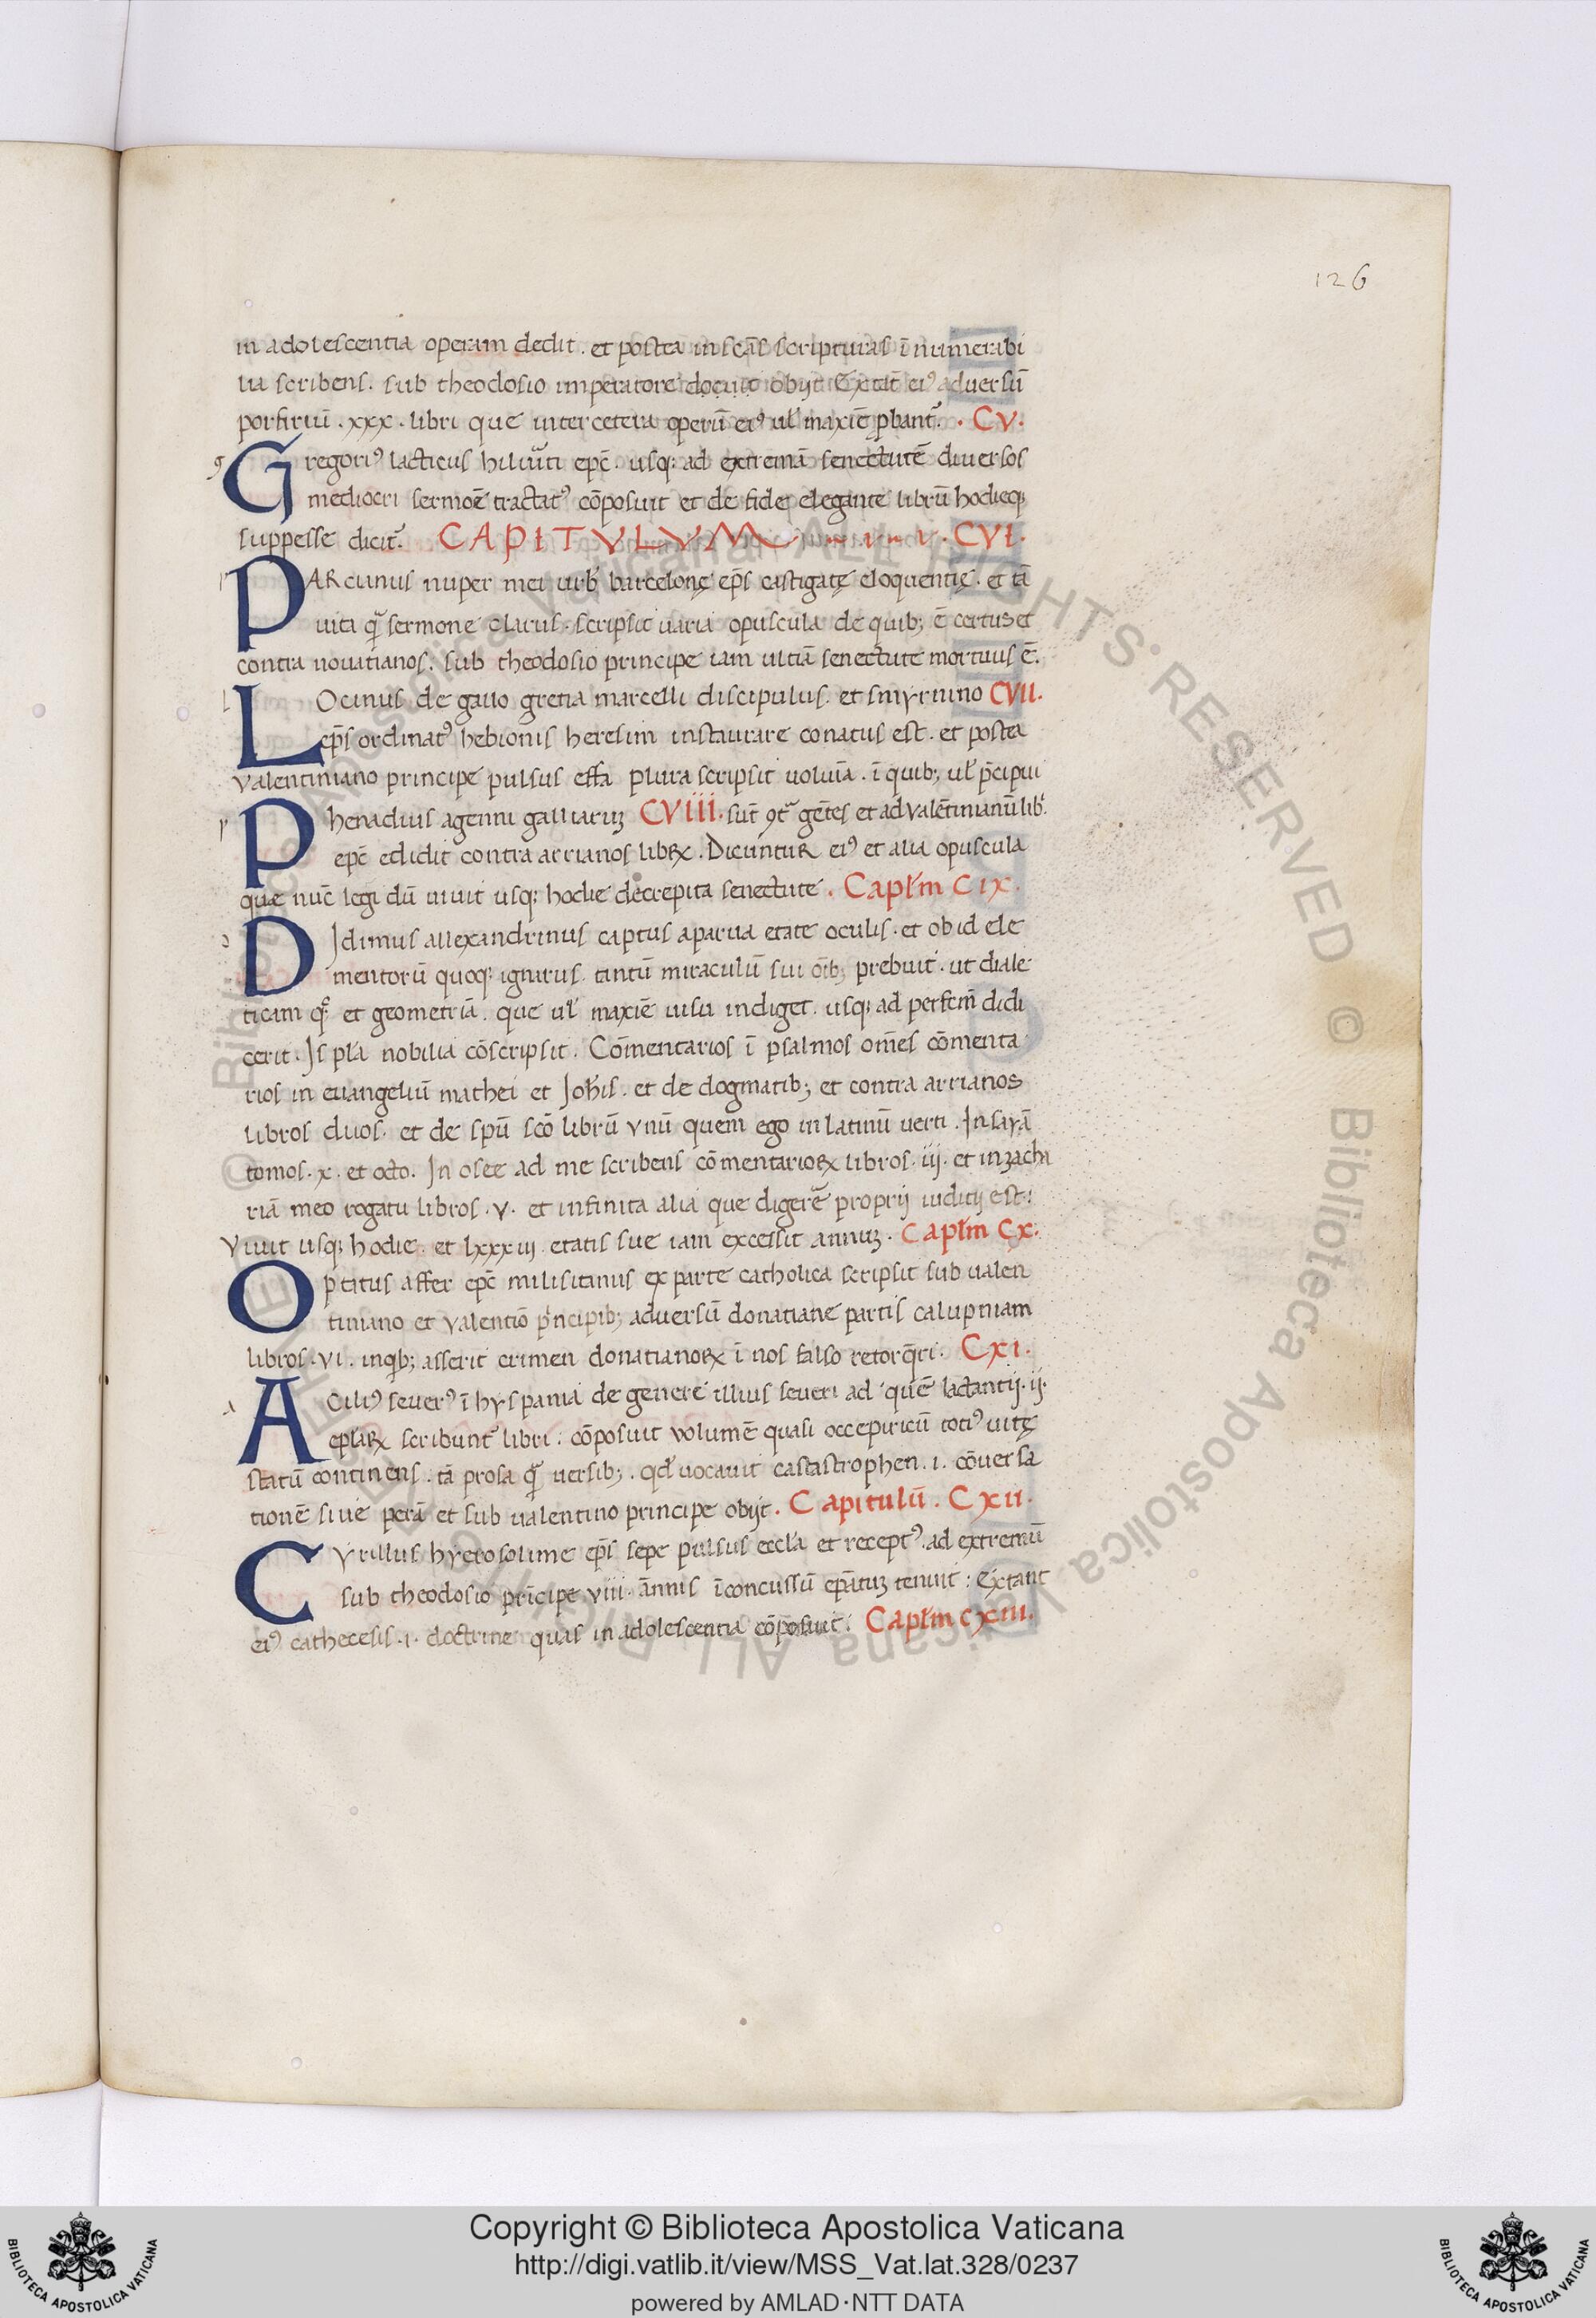 126
in adolescentia operam dedit . et postea in scās scripturas ī numerabi
lia scribens . sub theodosio imperatore docuit obijt Extāt ei⁹ adversū
porfiriū . xxx . libri que inter cetera operū ei⁹ ul' maxīe ꝓbant᷑ . CV .
Gregori⁹ lacticus hiliūti epc̄ . usq; ad extremā senectutē diuersos
mediocri sermoē tractat⁹ cōposuit et de fide elegante librū hodieq;
suppesse dicit᷑ . CAPITVLVM . CVI .
PARcianus nuper mei urb' barcelonę ep̄s castigatę eloquentię . et tā
uita q̄ sermone clarus . scripsit uaria opuscula de quib; ē certus et
contra nouatianos . sub theodosio principe iam ultīa senectute mortuus ē .
LOcinus de gallo gretia marcelli discipulus . et smyrnino CVII .
ep̄s ordinat⁹ hebionis heresim instaurare conatus est . et postea
valentiniano principe pulsus effa plura scripsit uoluīa . ī quib; ul' p̄cipui
Phenadius agenni galliarum CVIII . sūt ꝯt̄ gētes et ad valētinianū lib' .
epc̄ edidit contra arrianos libꝝ . DicuntuR ei⁹ et alia opuscula
que nūc legi dū uiuit usq; hodie decrepita senectute . Capl'm CIX .
DJdimus allexandrinus captus a parua etate oculis . et ob id ele
mentorū quoq; ignarus . tantū miraculū sui oīb; prebuit . ut diale
ticam q̄ et geometriā . que ul' maxīe uisu indiget . usq; ad perfem̄ didi
cerit . Js pl'a nobilia cōscripsit . Cōmentarios ī psalmos om̄es cōmenta
rios in euangeliū mathei et Joh'is . et de dogmatib; et contra arrianos
libros duos . et de spū scō librū vnū quem ego in latinū uerti . In sayā
tomos . x . et octo . In osee ad me scribens cōmentarioꝝ libros . iij . et in zacha
riā meo rogatu libros . v . et infinita alia que digerē proprij iudicij est :
Viuit usq; hodie . et lxxxiij . etatis sue iam excessit annum . Capl'm CX .
Optatus affer epc̄ milisitanus ex parte catholica scripsit sub ualen
tiniano et valentiō p'ncipib; adversū donatiane partis calupniam
libros . vi . in qib; asserit crimen donatianoꝝ ī nos falso retorq̄ri . CXI .
Acili⁹ sever⁹ ī hyspania de genere illius seueri ad quē lactantij . ij .
epl'aꝝ scribunt᷑ libri : cōposuit volumē quasi occepiricū toti⁹ uitę
statū continens . tā prosa q̄ versib; . qd' uocauit castastrophen . i . cōuersa
tionē siue perā et sub ualentino principe obijt . Capitulū . CXII .
Cyrillus hyerosolime ep̄s sepe pulsus eccl'a et recept⁹ . ad extremū
sub theodosio prīcipe viii . ānnis īconcussū ep̄atum tenuit : Extant
ei⁹ cathecesis . i . doctrine quas in adolescentia cōposuit : Capl'm CXIII .
© Biblioteca Apostolica Vaticana ALL RIGHTS RESERVED
Copyright © Biblioteca Apostolica Vaticana
http://digi.vatlib.it/view/MSS_Vat.lat.328/0237
powered by AMLAD·NTT DATA
BIBLIOTECA APOSTOLICA VATICANA
BIBLIOTECA APOSTOLICA VATICANA